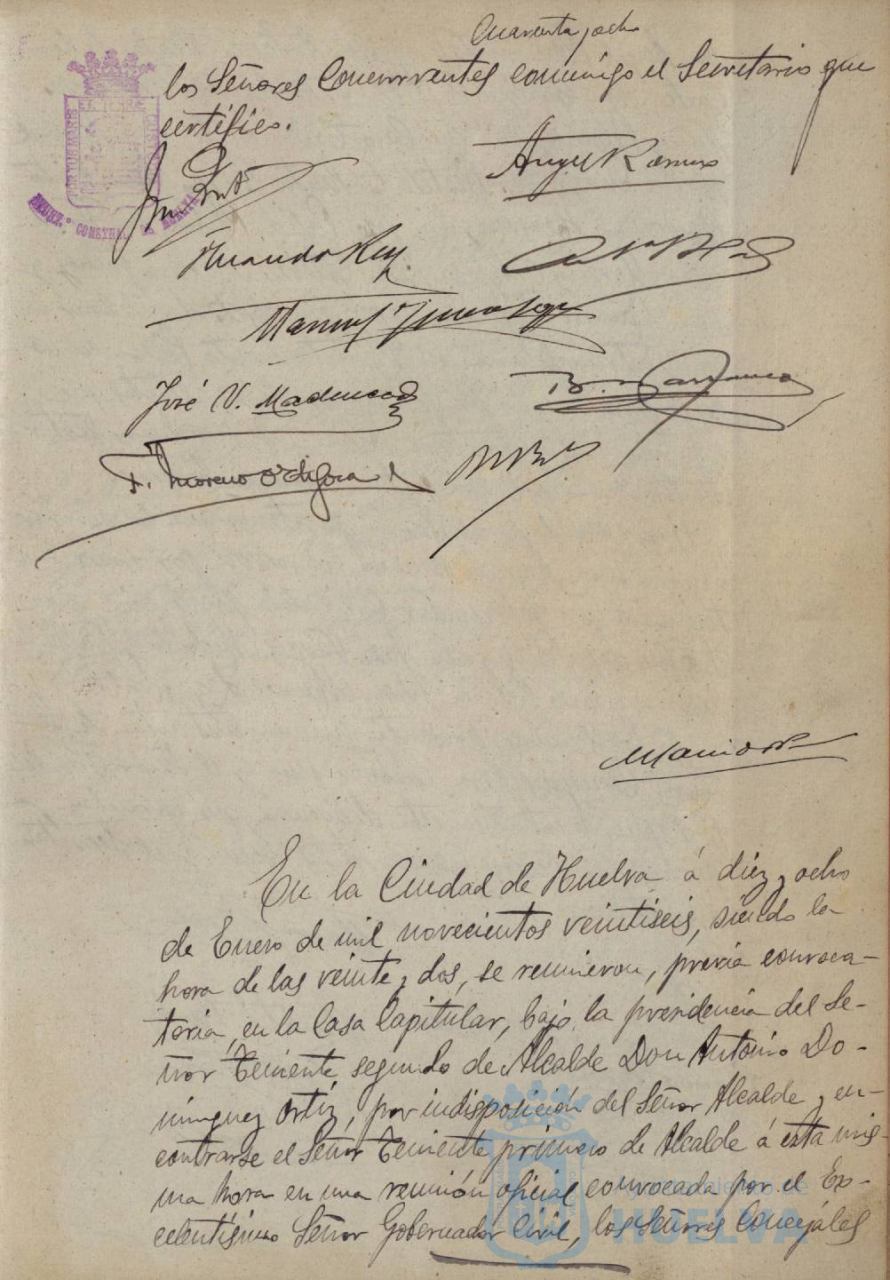 Cuarenta y ocho
los Señores Concurrentes conmigo el Secretario que
certifico.
PORTUS MARIS
HUELVA
Angel Ramos
Manuel
José V. Maduen
B. Barranco
F. Moreno Ortega
En la Ciudad de Huelva á diez y ocho
de Enero de mil novecientos veintiseis, siendo la
hora de las veinte y dos, se reunieron, previa convoca-
toria, en la Casa Capitular, bajo la presidencia del Se-
ñor Teniente segundo de Alcalde Don Antonio Do-
minguez Ortiz, por indisposición del Señor Alcalde y en-
contrarse el Señor Teniente primero de Alcalde á esta mis-
ma hora en una reunión oficial convocada por el Ex-
celentísimo Señor Gobernador Civil, los Señores Concejales
Ayuntamiento de
HUELVA